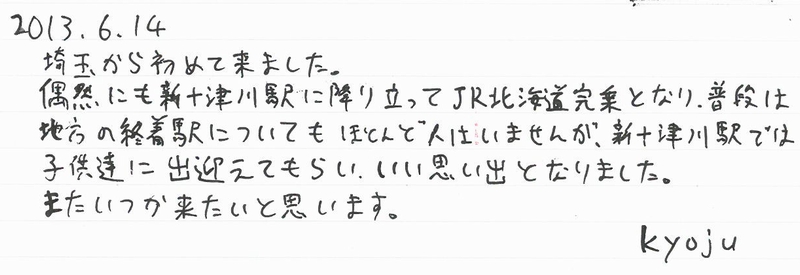 2013.6.14
埼玉から初めて来ました。
偶然にも新十津川駅に降り立ってJR北海道完乗となり、普段は
地方の終着駅についてもほとんど人はいませんが、新十津川駅では
子供達に出迎えてもらい、いい思い出となりました。
またいつか来たいと思います。
kyoju